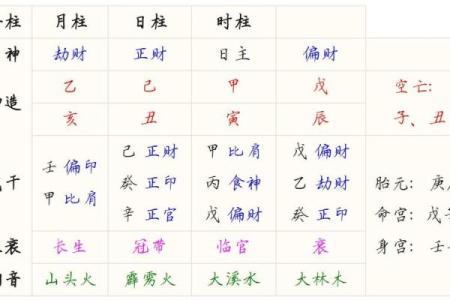 柱 月柱 日柱 时柱
神 劫财 正财 日主 偏财
造 乙 己 甲 戊 空亡:
亥 丑 寅 辰 子、丑
己 正财 甲 比肩 戊 偏财
壬 偏印
干 癸 正印 丙 食神 乙 劫财 胎元: 庚
甲 比肩
辛 正官 戊 偏财 癸 正印 命宫: 戊
衰 长生 冠带 临官 衰 身宫: 壬
音 山头火 霹雳火 大溪水 大林木